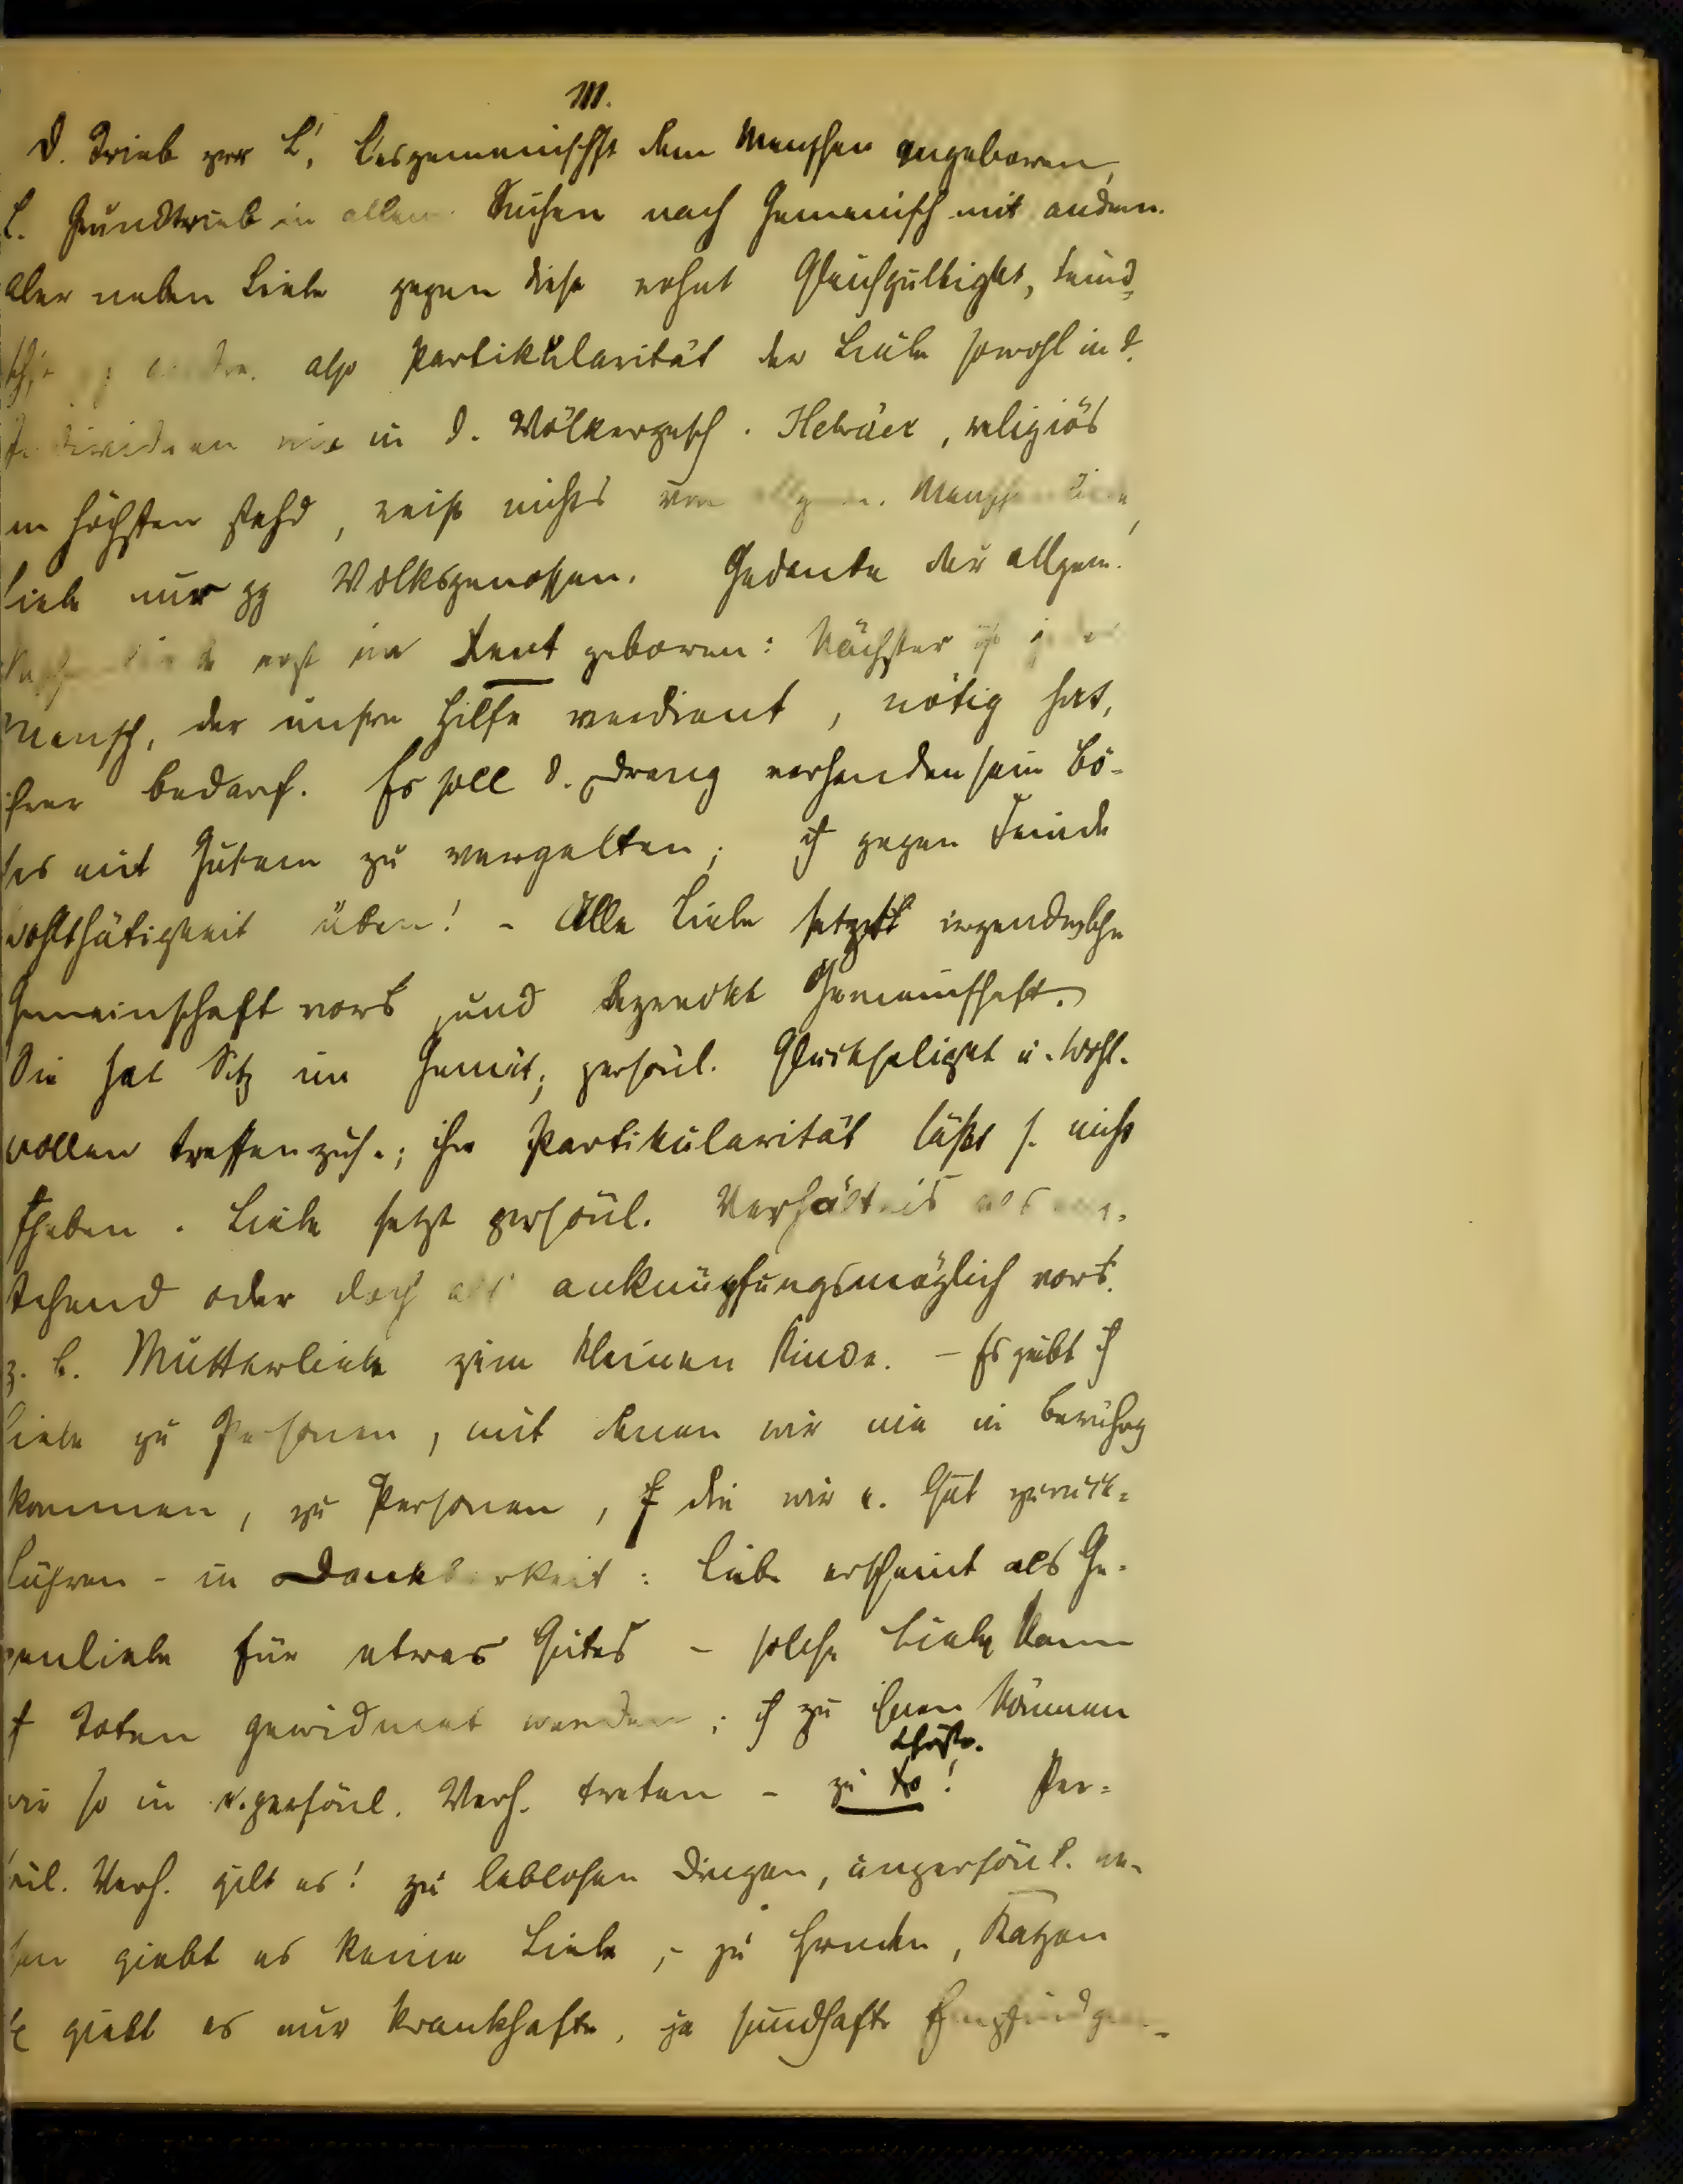 III.
D. Trieb zur L', L'esgemeinschft dem Menschen angeboren,
L. Grundtrieb in allem Suchen nach Gemeinsch mit andern.
Aber neben Liebe gegen diese wohnt Gleichgültigkt, Feind=
also Partikularität der Liebe sowohl in d.
Individuen wie in d. Völkergesch. Hebräer, religiös
m höchsten stehd, weiß nichts von allgem. Menschenliebe,
Liebe nur gg Volksgenossen. Gedanke der allgem.
erst im Xent geboren: Nächster ist jeder
Mensch, der unsre Hilfe verdient, nötig hat,
ihrer bedarf. Es soll d. Drang vorhanden sein Bö-
ses mit Gutem zu vergelten; gegen Feinde
Wohlthätigkeit üben! - Alle Liebe setzt irgendwelche
Gemeinschaft vors und bezweckt Gemeinschaft.
Sie hat Sitz im Gemüt; persönl. Glückseligkt u. Wohl-
wollen treffen zus.; ihre Partikularität läßt s. nicht
heben. Liebe setzt persönl. Verhältnis als
stehend oder doch als anknüpfungsmöglich vors.
z. B. Mutterliebe zum kleinen Kinde. - Es giebt
Liebe zu Personen, mit denen wir nie in Berührg
kommen, zu Personen, f die wir e. Gut zurück-
führen - in Dankbarkeit: Liebe erscheint als Ge-
genliebe für etwas Gutes - solche Liebe kann
f Toten gewidmet werden; zu ihnen können
Christo.
wir so in e. persönl. Verh. treten - zu Xo! Per-
sönl. Verh. gilt es! zu leblosen Dingen, unpersönl. We-
sen giebt es keine Liebe, - zu Hunden, Katzen
giebt es nur krankhafte, ja sündhafte Empfindgen